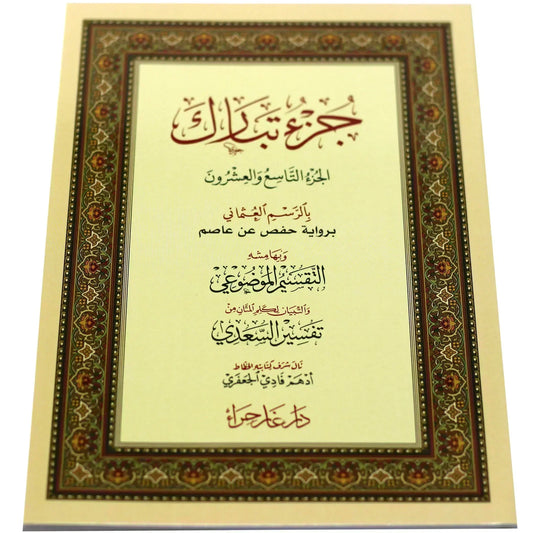 جُزْءُ تَبَارَكَ
الجُزْءُ التَّاسِعُ وَالعِشْرُونَ
بِالرَّسْمِ العُثْمَانِي
برواية حفص عن عاصم
وَبِهَامِشِهِ
التَّقْسِيْمُ المَوْضُوْعِيْ
وَالتِّبْيَانِ لِكَلِمِ المَنَّانِ مِنْ
تَفْسِيْرِ السَّعْدِيْ
نَالَ شَرَفَ كِتَابَتِهِ الخَطَّاط
أدْهَمْ فَادِي الجَعْفَرِي
دَارُ غَارِ حِرَاءَ